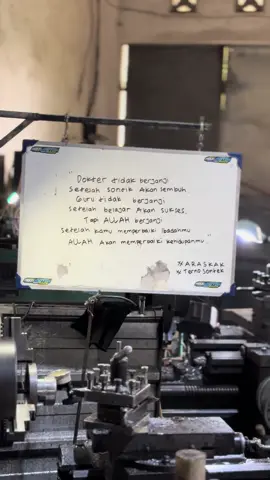 "Dokter tidak berjanji
setelah suntik Akan sembuh
Guru tidak berjanji
setelah belajar Akan sukses.
Tapi ALLAH berjanji
setelah kamu memperbaiki Ibadahmu
ALLAH Akan memperbaiki kehidupanmu"
ARASKAK